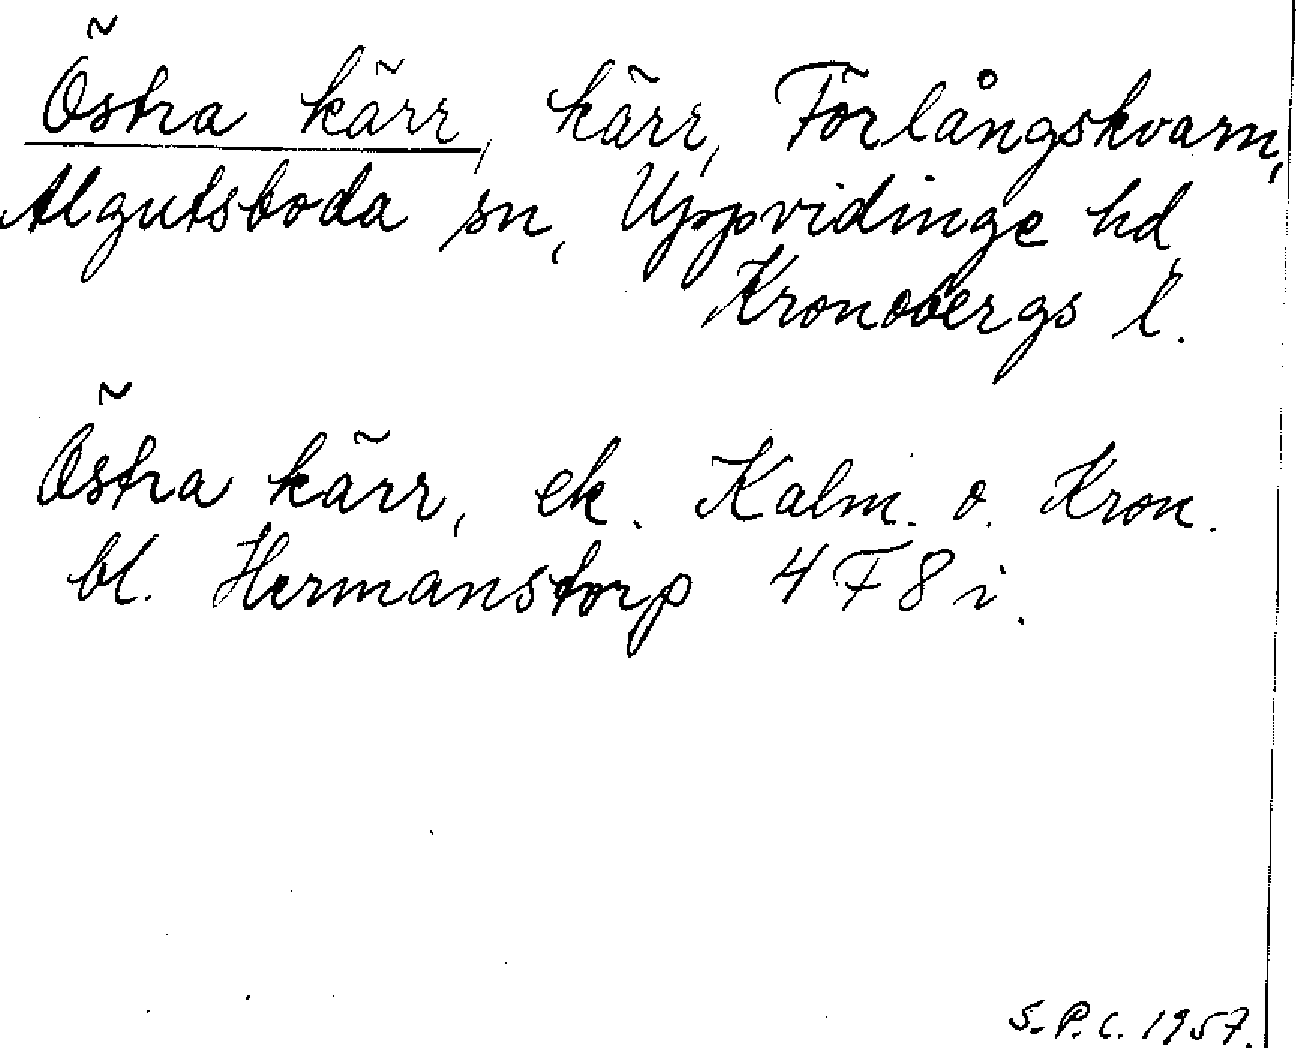 Östra kärr, kärr, Förlångskvarn,
Algutsboda sn, Uppvidinge hd,
Kronobergs l.
Östra kärr, ek. Kalm. o. Kron.
bl. Hermanstorp 4 F 8 i.
S.P.C. 1957.